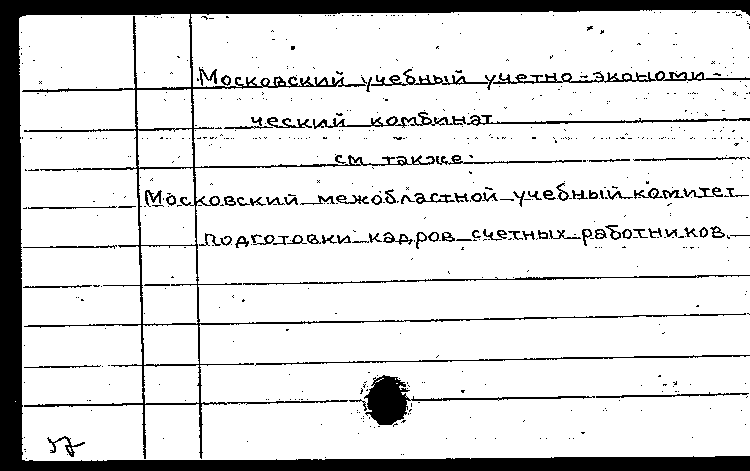 Московский учебный учетно-экономи-
ческий комбинат
см также:
Московский межобластной учебный комитет
подготовки кадров счетных работников.